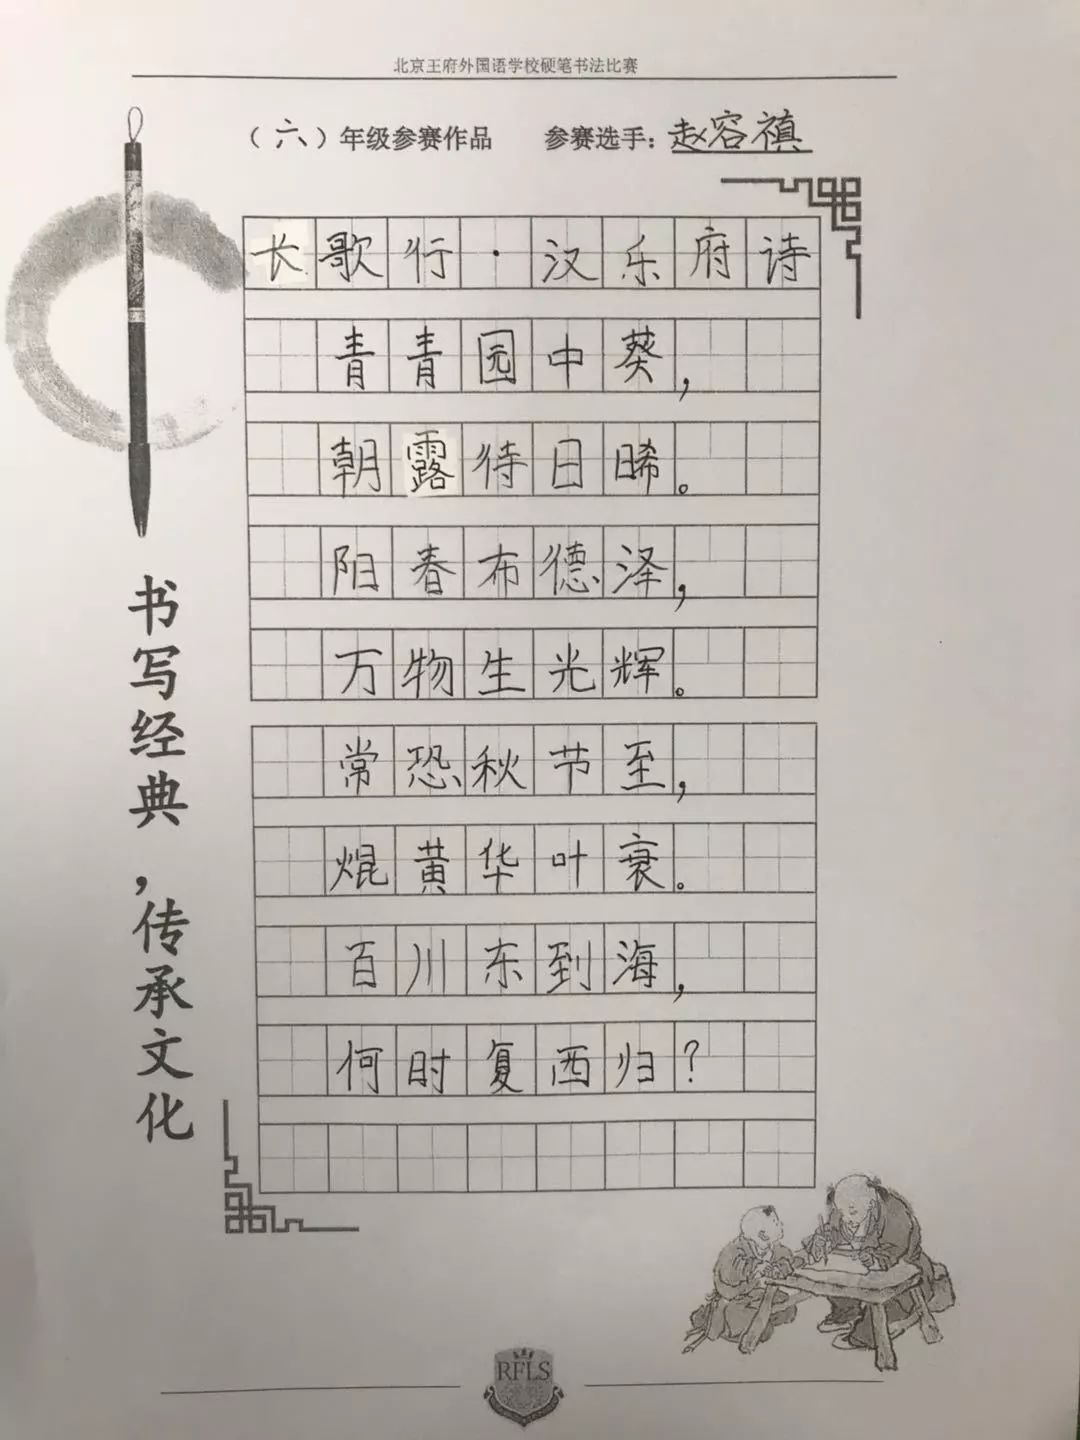 北京王府外国语学校硬笔书法比赛
（六）年级参赛作品 参赛选手：赵容禛
长歌行·汉乐府诗
青青园中葵，
朝露待日晞。
阳春布德泽，
万物生光辉。
常恐秋节至，
焜黄华叶衰。
百川东到海，
何时复西归？
书写经典，传承文化
RFLS